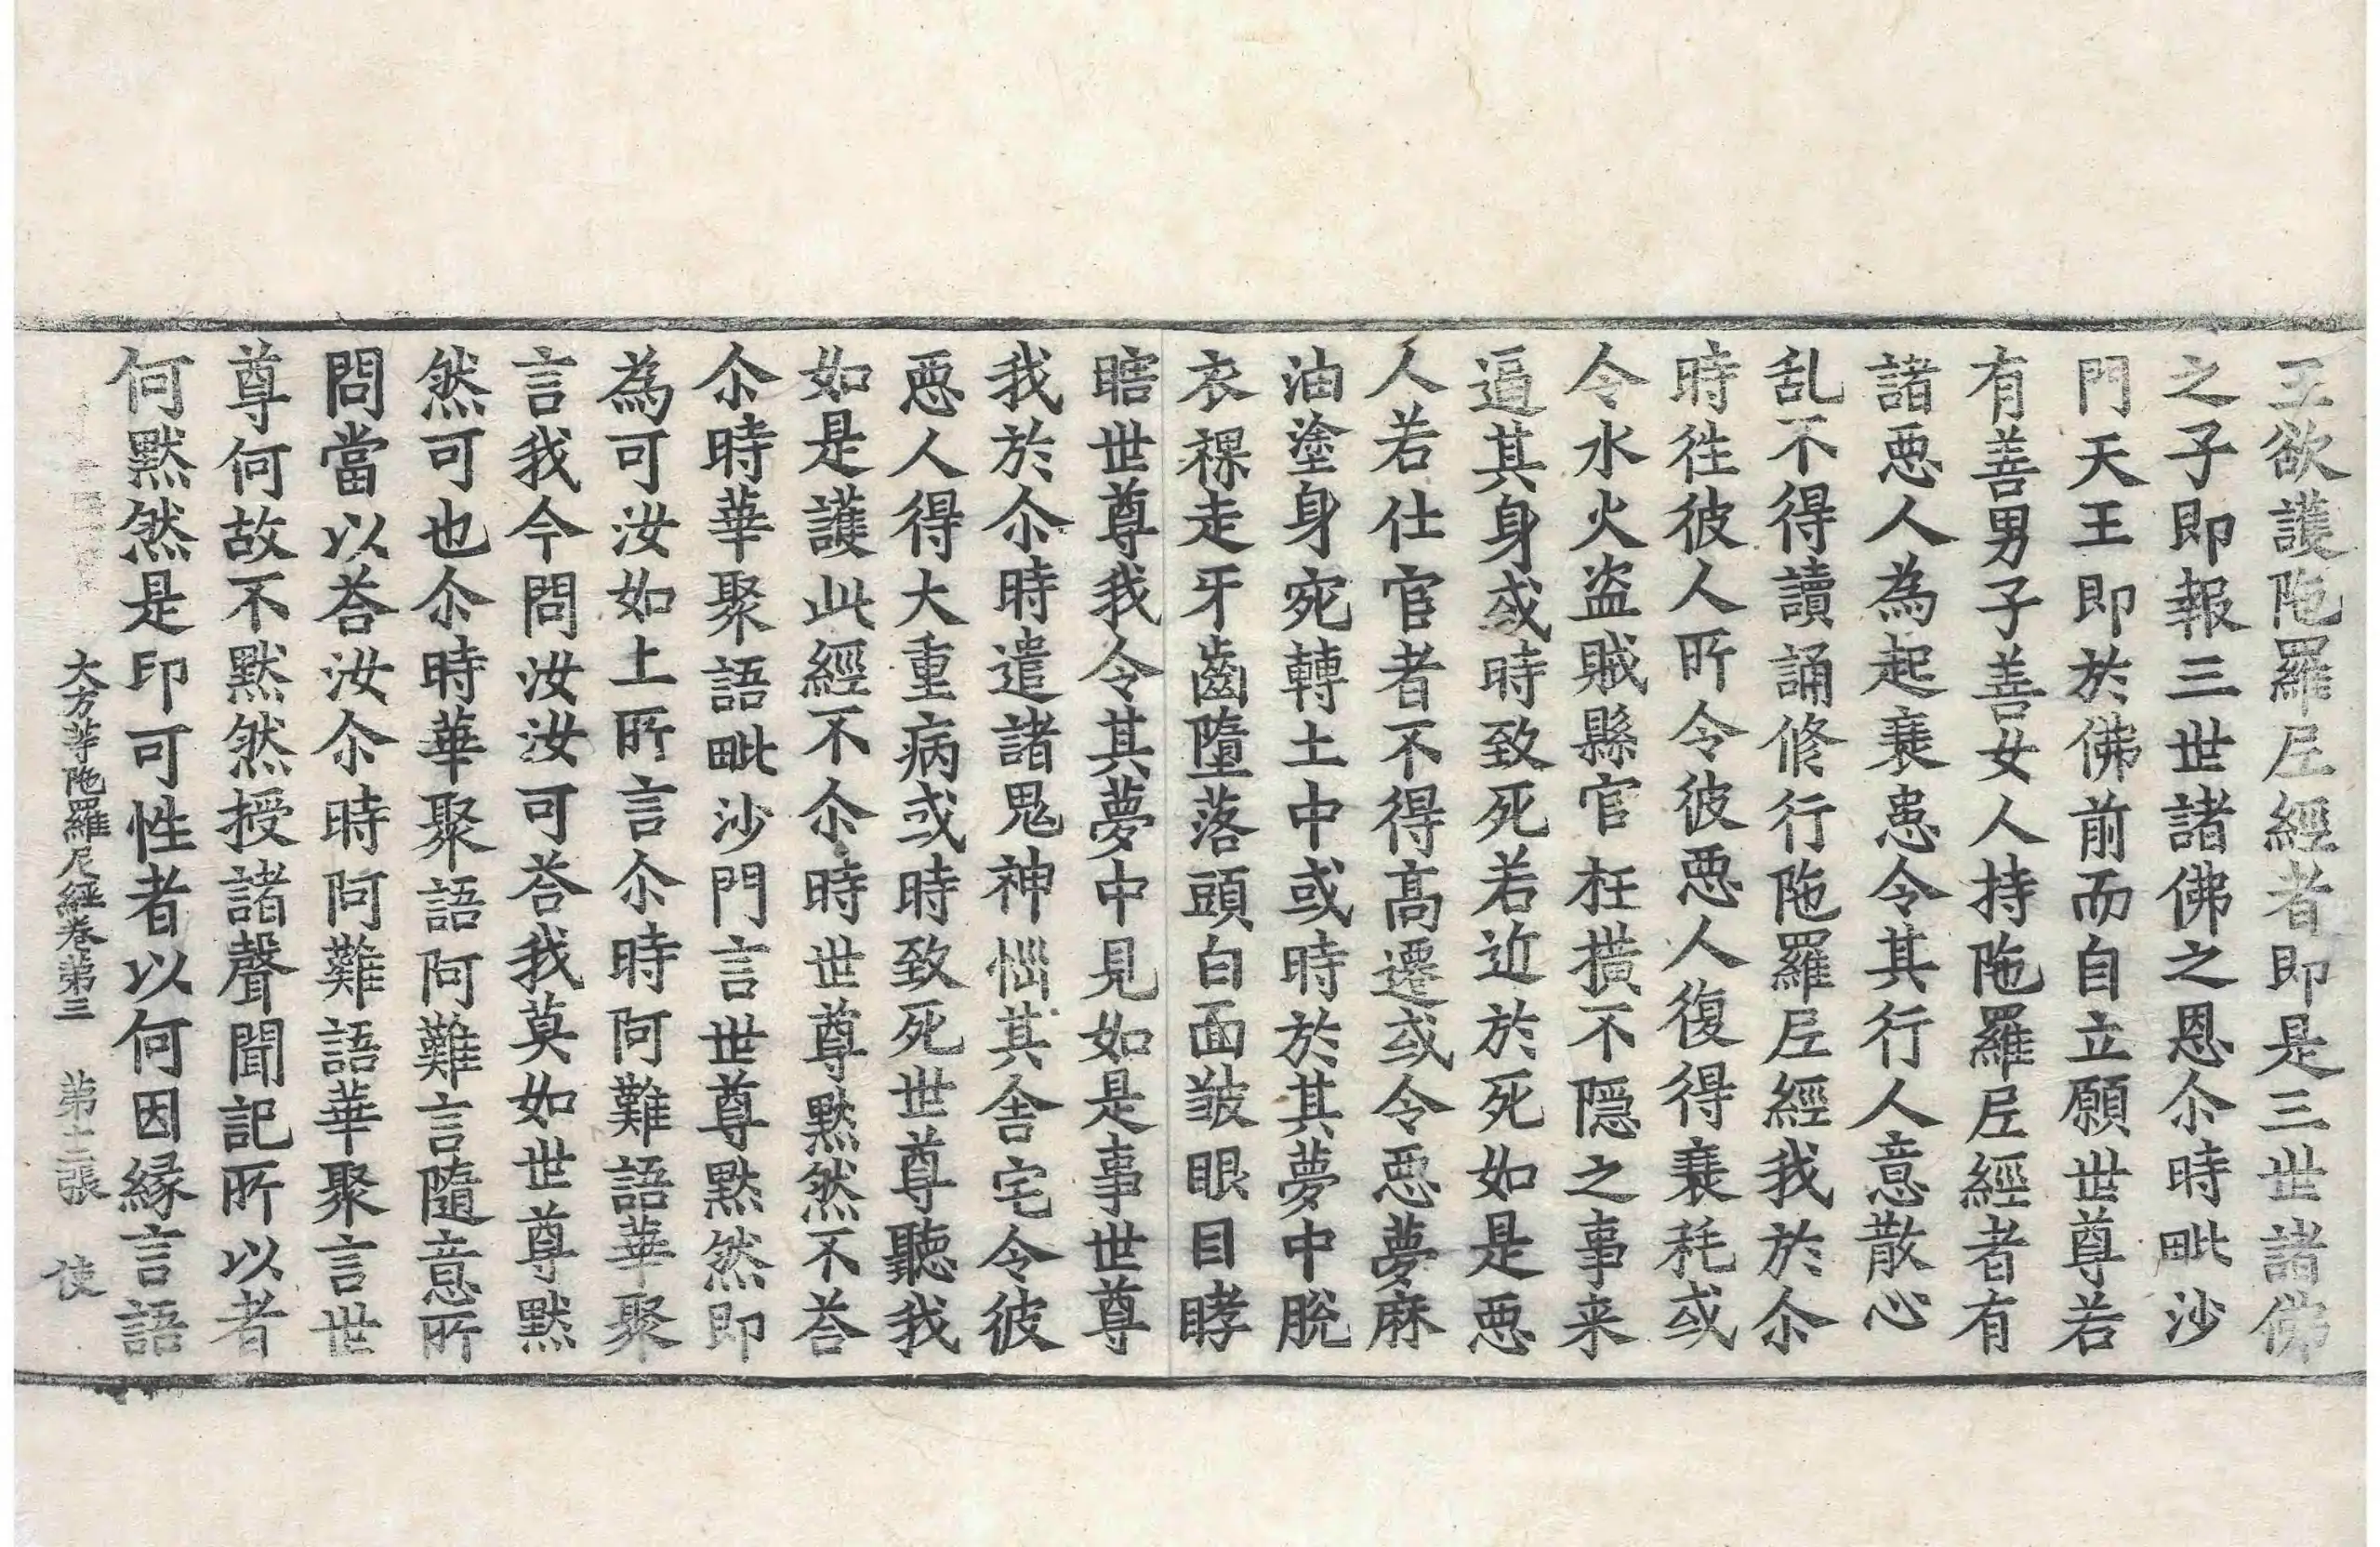 王欲護陁羅𡰱經者即是三世諸佛
之子即報三世諸佛之恩尒時毗沙
門天王即於佛前而自立願世尊若
有善男子善女人持陁羅𡰱經者有
諸惡人為起衰患令其行人意散心
乱不得讀誦修行陁羅𡰱經我於尒
時徃彼人所令彼惡人復得衰耗或
令水火盗賊縣官枉撗不隠之事来
逼其身或時致死若近於死如是惡
人若仕官者不得髙遷或令惡夢麻
油塗身宛轉土中或時於其夢中脫
衣祼走牙齒墮落頭白面皺眼目㬋
瞎世尊我令其夢中見如是事世尊
我於尒時遣諸鬼神惱其舍宅令彼
惡人得大重病或時致死世尊聽我
如是護此經不尒時世尊黙然不荅
尒時華聚語毗沙門言世尊黙然即
為可汝如上所言尒時阿難語華聚
言我今問汝汝可荅我莫如世尊黙
然可也尒時華聚語阿難言隨意所
問當以荅汝尒時阿難語華聚言世
尊何故不黙然授諸聲聞記所以者
何黙然是印可性者以何因緣言語
大方等陁羅尼經卷第三　第十二張　使